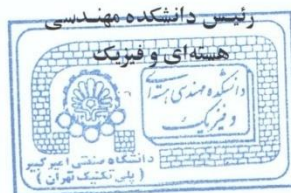 رئیس دانشکده مهندسی
هسته‌ای و فیزیک
دانشکده مهندسی هسته‌ای
و فیزیک
دانشگاه صنعتی امیرکبیر
( پلی تکنیک تهران )